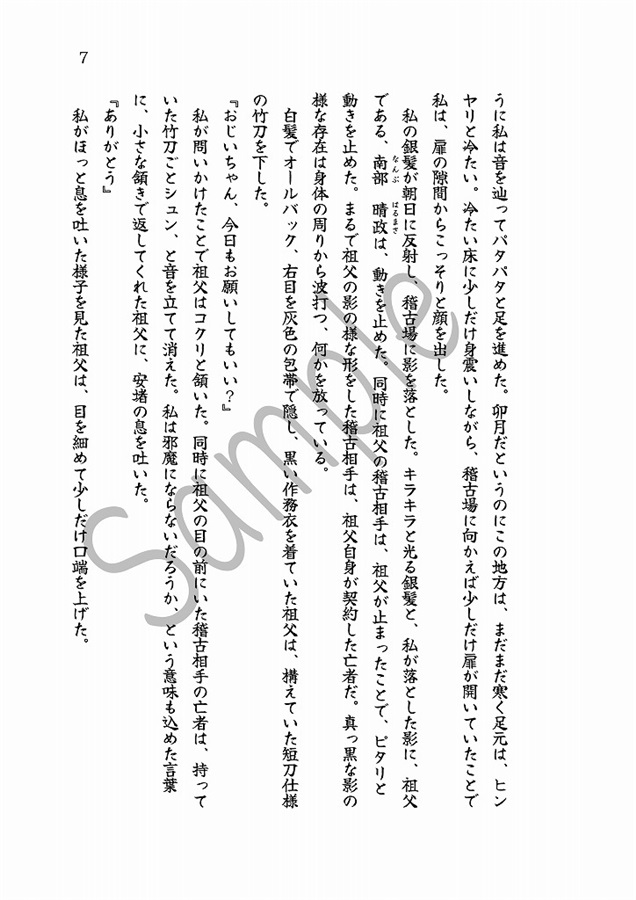 7
うに私は音を辿ってパタパタと足を進めた。卯月だというのにこの地方は、まだまだ寒く足元は、ヒン
ヤリと冷たい。冷たい床に少しだけ身震いしながら、稽古場に向かえば少しだけ扉が開いていたことで
私は、扉の隙間からこっそりと顔を出した。
私の銀髪が朝日に反射し、稽古場に影を落とした。キラキラと光る銀髪と、私が落とした影に、祖父
である、南部　晴政は、動きを止めた。同時に祖父の稽古相手は、祖父が止まったことで、ピタリと
なんぶ　はるまさ
動きを止めた。まるで祖父の影の様な形をした稽古相手は、祖父自身が契約した亡者だ。真っ黒な影の
様な存在は身体の周りから波打つ、何かを放っている。
白髪でオールバック、右目を灰色の包帯で隠し、黒い作務衣を着ていた祖父は、構えていた短刀仕様
の竹刀を下した。
『おじいちゃん、今日もお願いしてもいい？』
私が問いかけたことで祖父はコクリと頷いた。同時に祖父の目の前にいた稽古相手の亡者は、持って
いた竹刀ごとシュン、と音を立てて消えた。私は邪魔にならないだろうか、という意味も込めた言葉
に、小さな頷きで返してくれた祖父に、安堵の息を吐いた。
『ありがとう』
私がほっと息を吐いた様子を見た祖父は、目を細めて少しだけ口端を上げた。
Sample